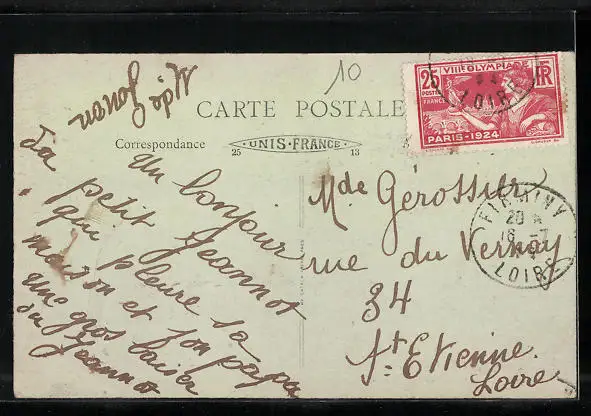 10
CARTE POSTALE
Correspondance
UNIS-FRANCE
25
13
Un bonjour
petit Jeannot
qui pleure sa
maison et son papa
une gros baiser
du Jeannot
25
VIIIE OLYMPIADE
FR
POSTES
FRANCE
PARIS-1924
LOIRE
Mde Gerossier
rue du Vernay
34
St Etienne
Loire
FIRMINY
20
16 -7
LOIRE